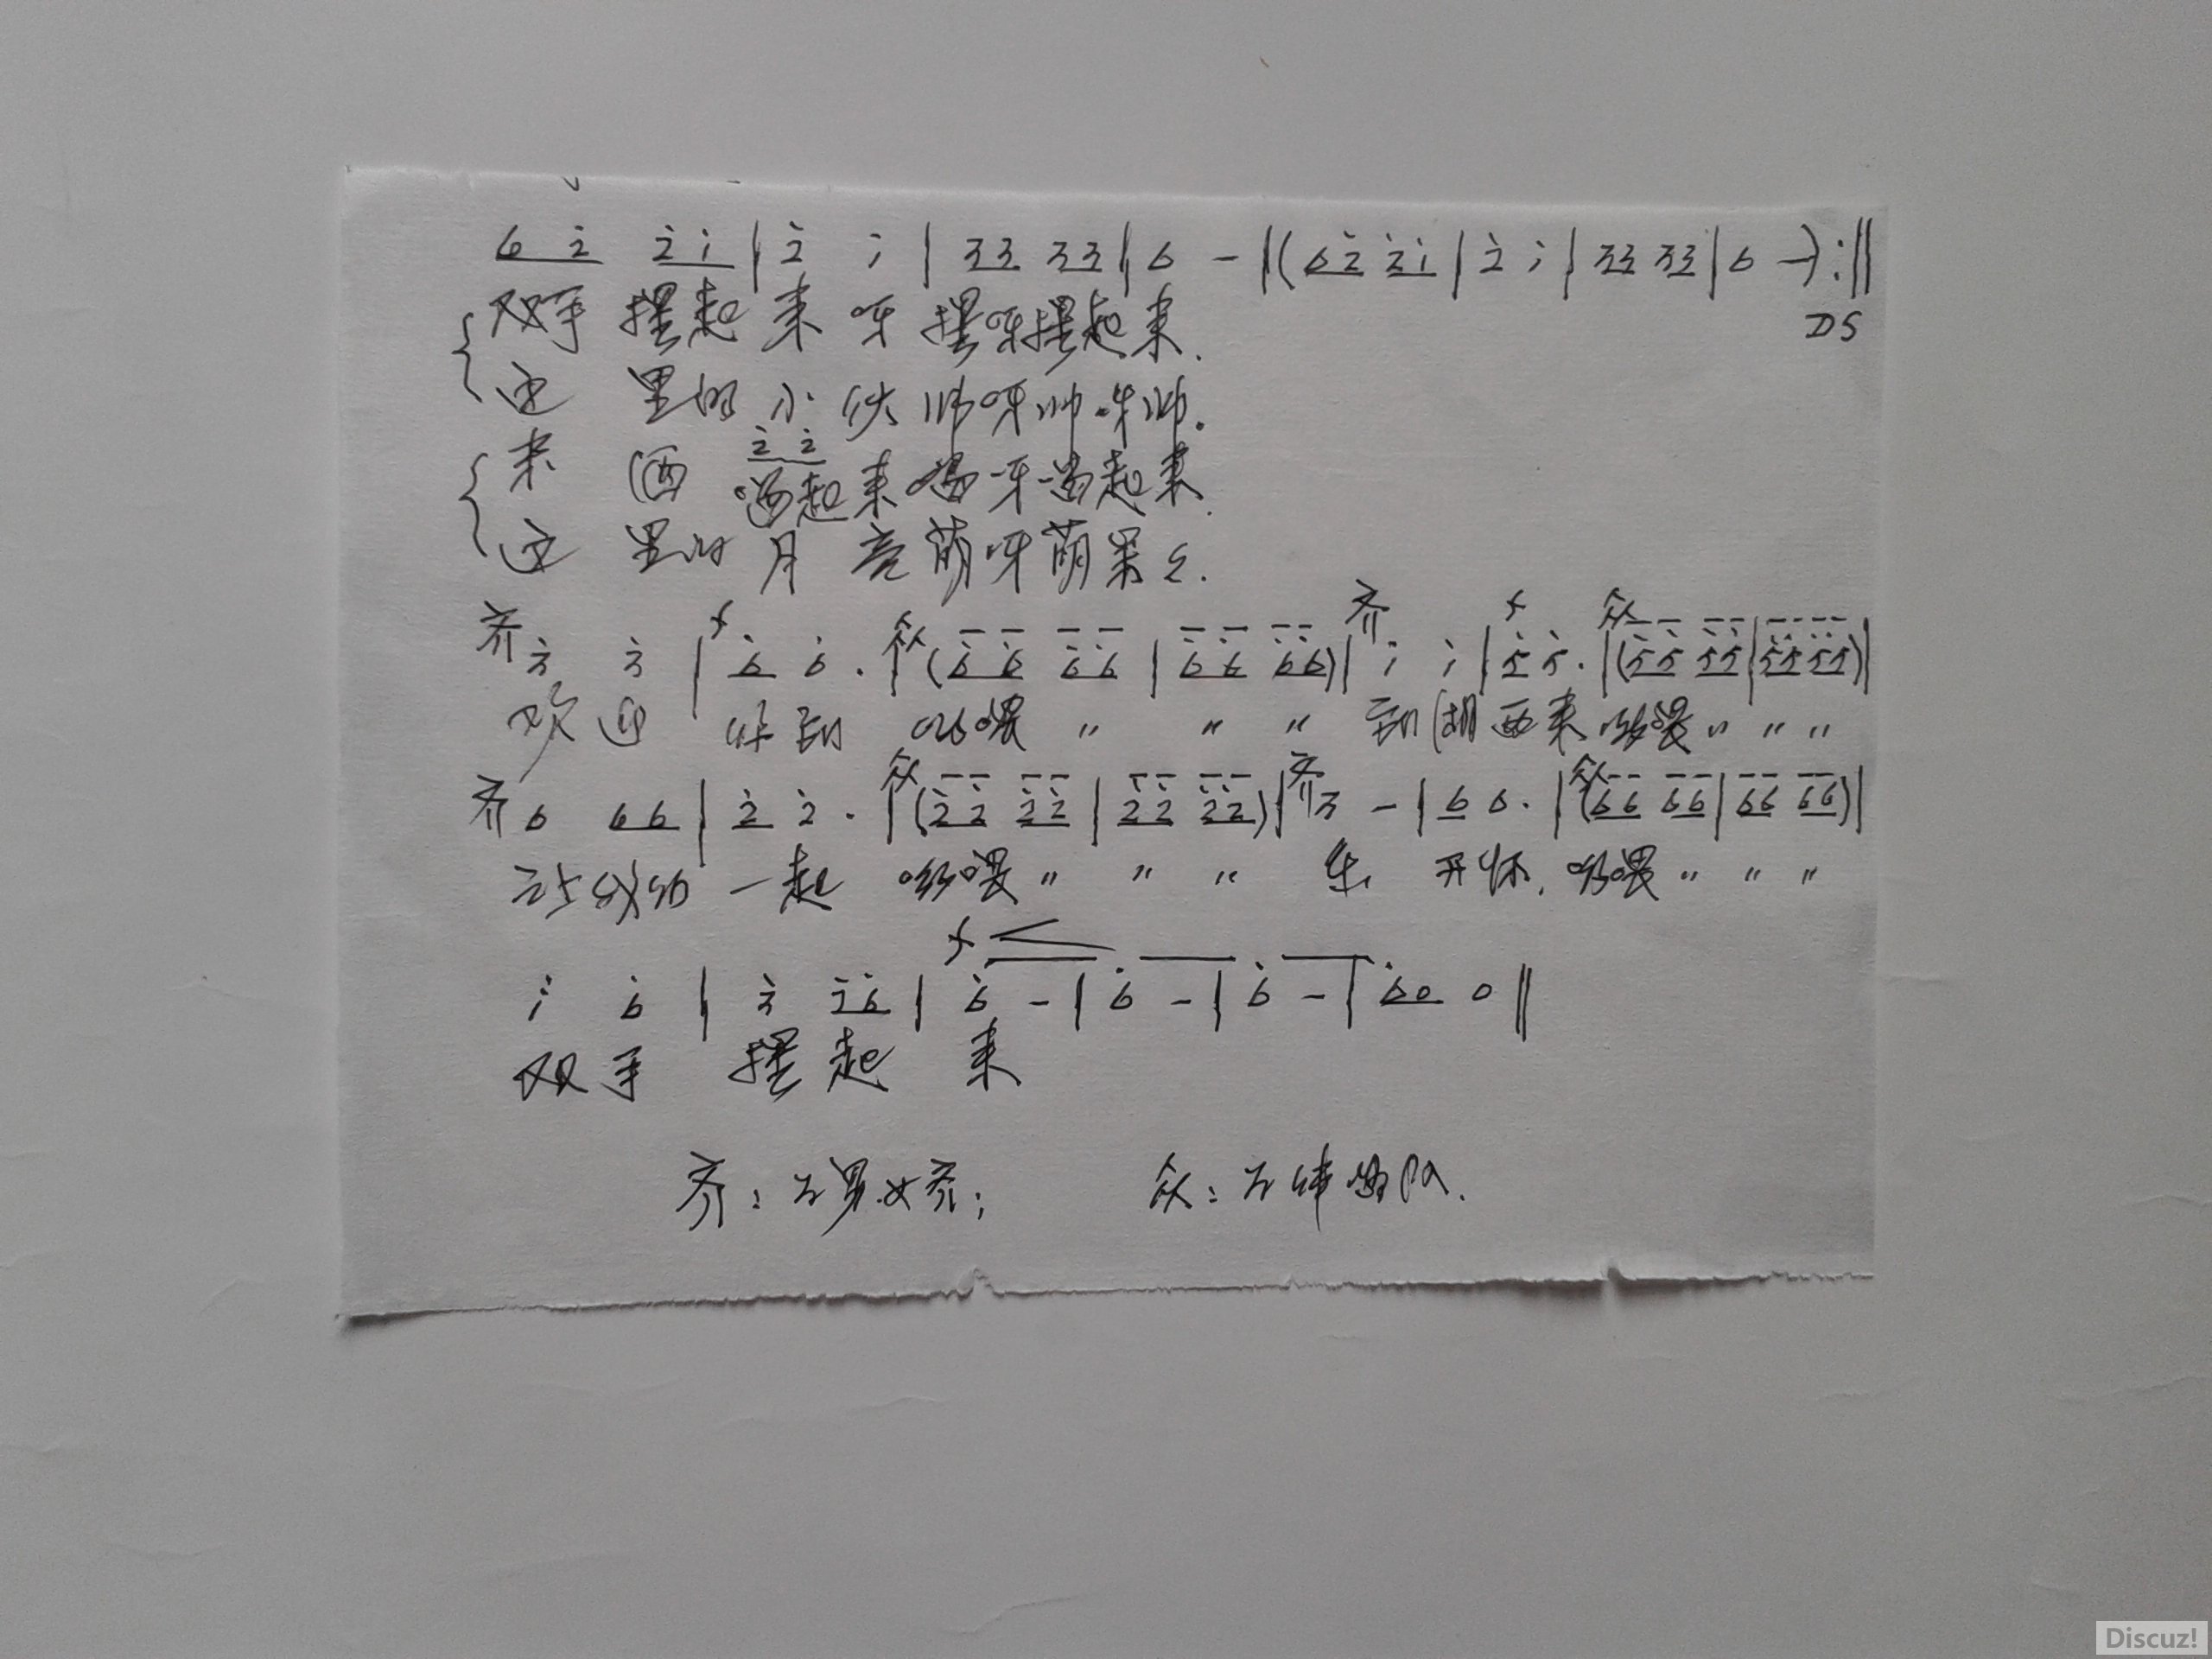 6 2̇ 2̇ 1̇ | 2̇ 1̇ | 33 33 | 6 - | (62̇ 2̇1̇ | 2̇ 1̇ | 33 33 | 6 -) :‖
DS
双手 摆起 来 呀 摆呀摆起来.
这 里的 小 伙 帅呀帅呀帅.
2̇ 2̇
来 唱起来 唱呀唱起来.
这 里的 月 亮 萌呀萌
齐 3̇ 3̇ | f 6̇ 6̇ . | 众 (6̇ 6̇ 6̇6̇ | 6̇6̇ 6̇6̇) | 齐 1̇ 1̇ | f 5̇ 5̇. | 众 (5̇5̇ 5̇5̇ | 5̇5̇ 5̇5̇) |
欢 迎 你 到 哟喂 " " " 到 湖 西来 哟喂 " " "
齐 6 66 | 2̇ 2̇ . | 众 (2̇2̇ 2̇2̇ | 2̇2̇ 2̇2̇) | 齐 3 - | 6 6. | 众 (66 66 | 66 66) |
一起 哟喂 " " " 乐 开怀. 哟喂 " " "
f <
1̇ 6̇ | 3̇ 6̇ | 6̇ - | 6̇ - | 6̇ - | 6̇0 0 ‖
双手 摆 起 来
齐: 男.女齐; 众: 队.